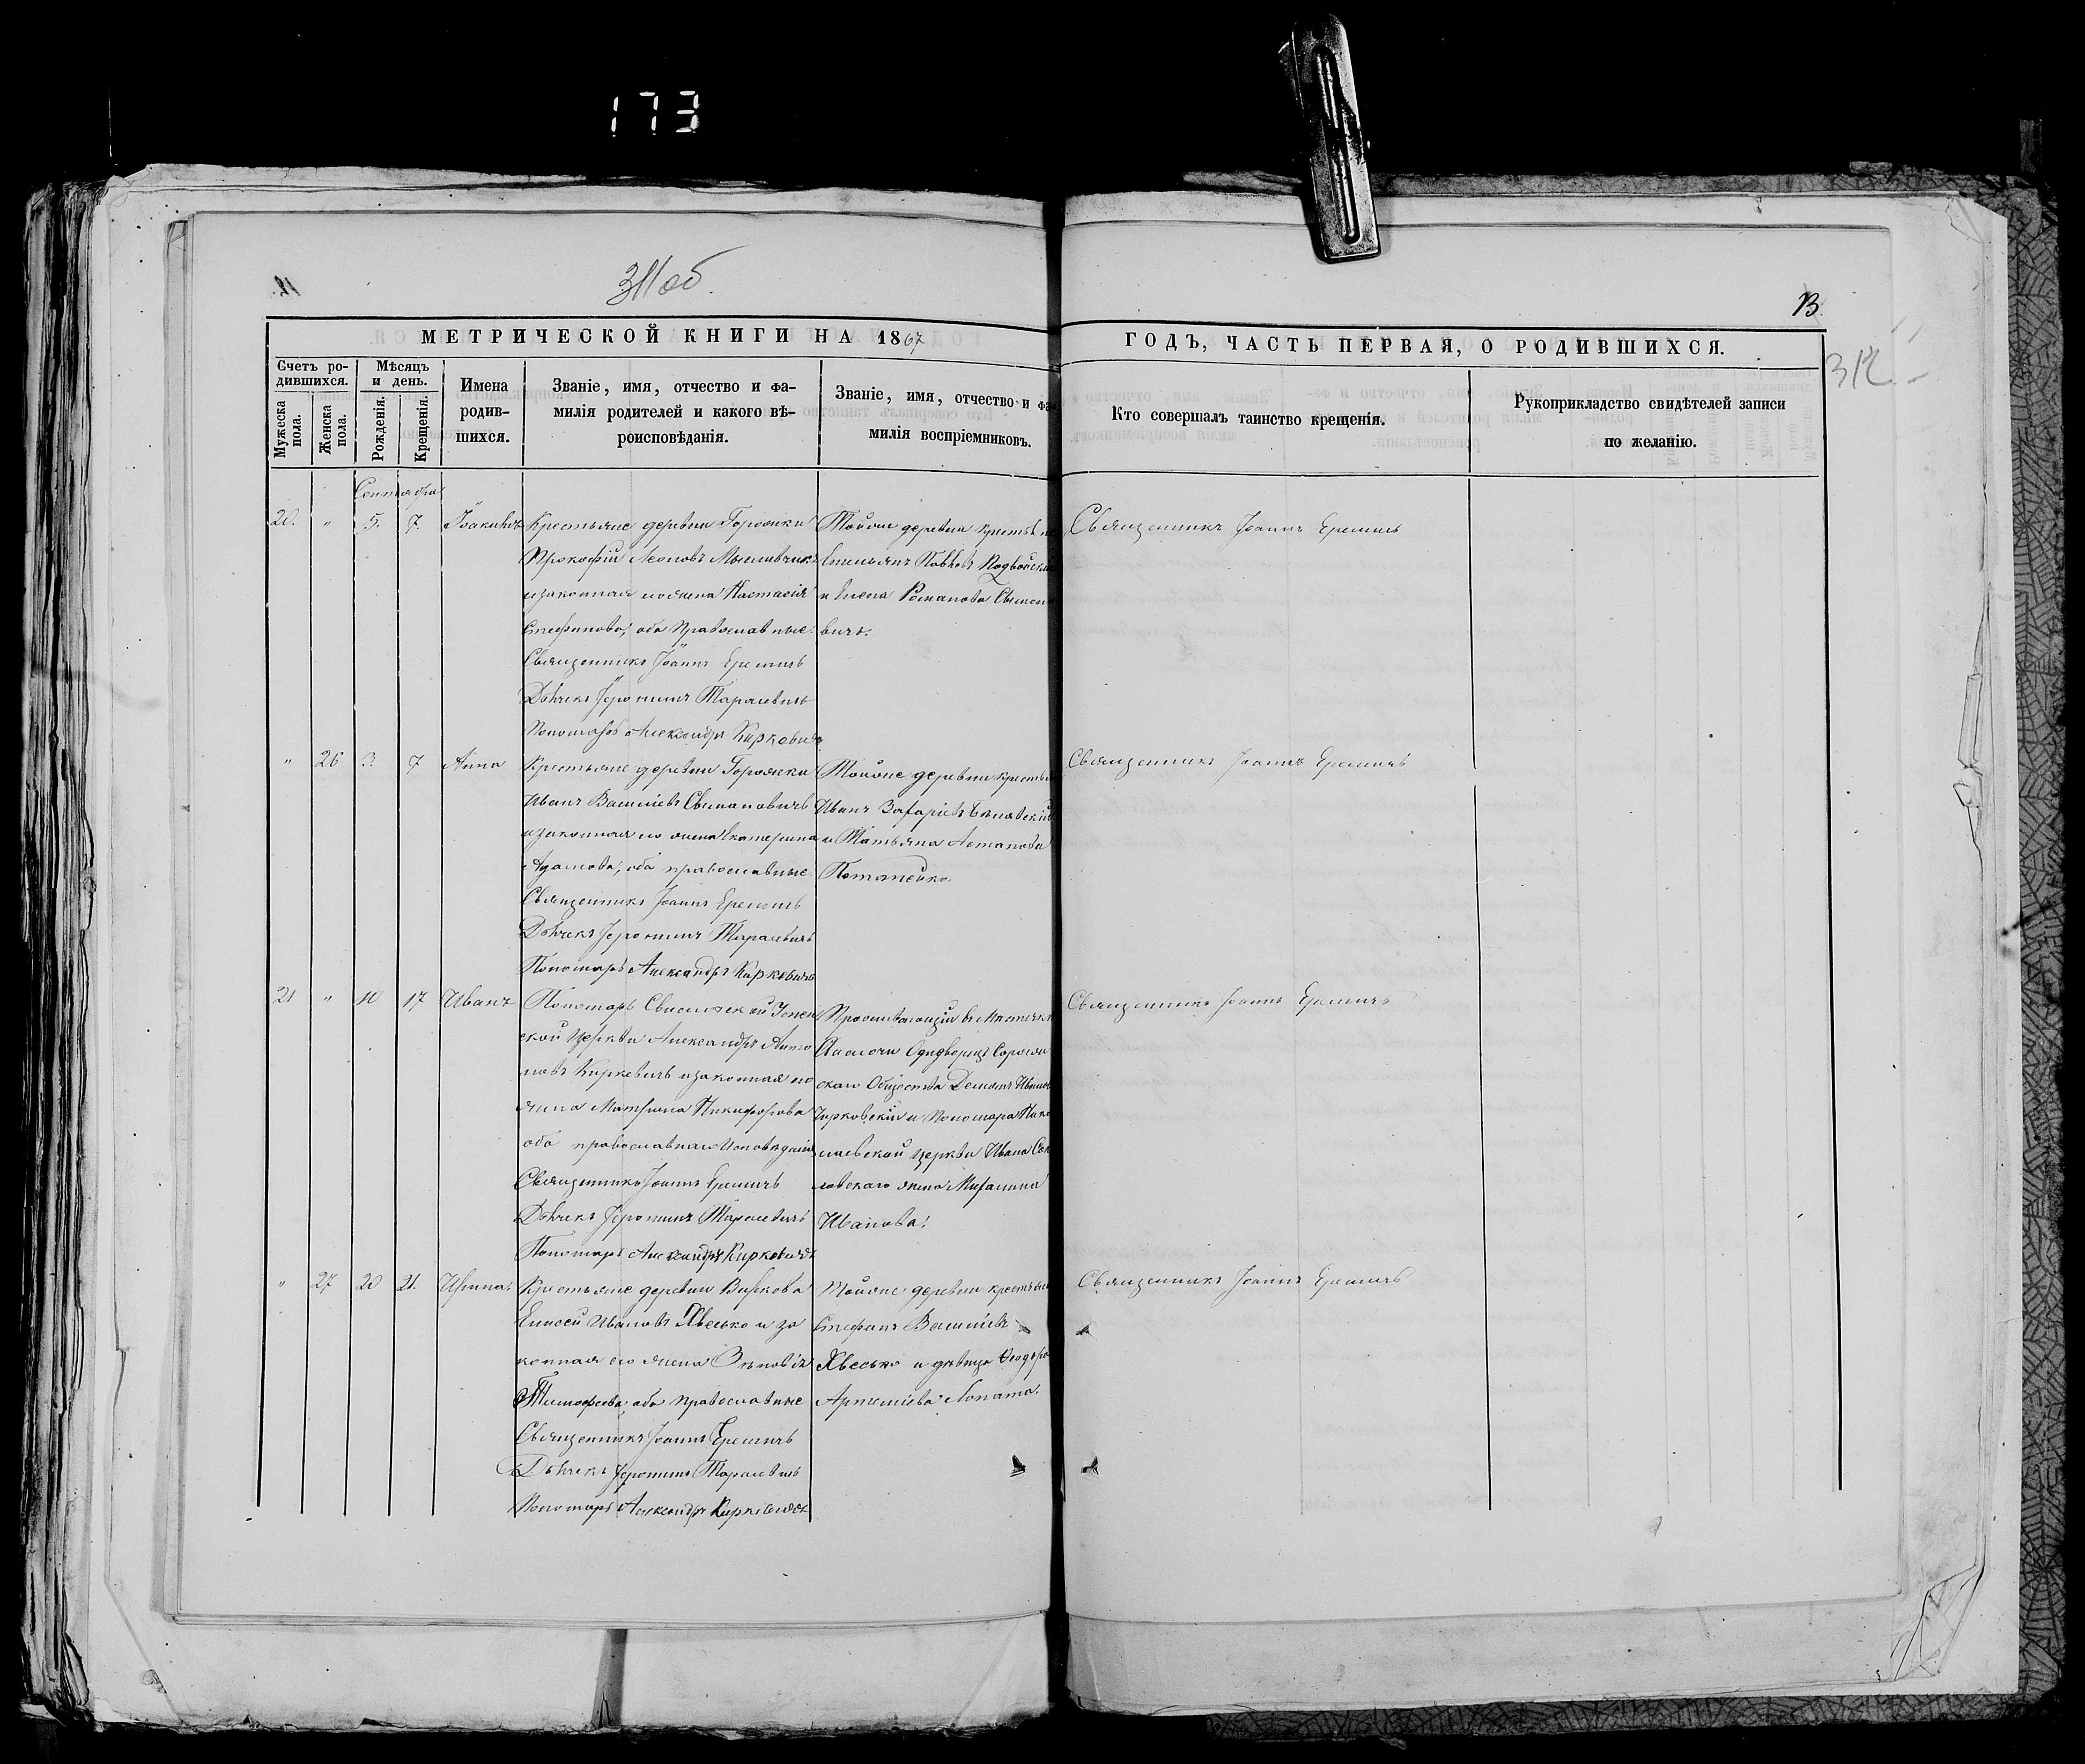 173
311 об.
13
312
МЕТРИЧЕСКОЙ КНИГИ НА 1867
ГОДЪ, ЧАСТЬ ПЕРВАЯ, О РОДИВШИХСЯ.
Счетъ ро-
дившихся.
Мужеска
пола.
Женска
пола.
Мѣсяцъ
и день.
Рожденія.
Крещенія.
Имена
родив-
шихся.
Званіе, имя, отчество и фа-
милія родителей и какого вѣ-
роисповѣданія.
Званіе, имя, отчество и фа-
милія воспріемниковъ.
Кто совершалъ таинство крещенія.
Рукоприкладство свидѣтелей записи
по желанію.
Сентября
20. " 5. 7. Іоакимъ
Крестьяне деревни Горожки
Прокофій Леоновъ
и законная его жена Настасія
Стефанова, оба православные.
Священникъ Іоаннъ Еремичъ
Дьячекъ Іеронимъ Тарасевичъ
Пономарь Александръ Киркевичъ
Тойже деревни
Емельянъ Павловъ Подвойскій
и Елена Романова Симоно
вичъ.
Священникъ Іоаннъ Еремичъ
" 26 3. 7 Анна
Крестьяне деревни Горожки
Иванъ Васильевъ Симоновичъ
и законная его жена Екатерина
Адамова, оба православные
Священникъ Іоаннъ Еремичъ
Дьячекъ Іеронимъ Тарасевичъ
Пономарь Александръ Киркевичъ
Тойже деревни
Иванъ Захаріевъ
и Татьяна Астапова
Потапейко
Священникъ Іоаннъ Еремичъ
21 " 10 17 Иванъ
Пономарь Свислочской Успен
ской Церкви Александръ Анто
новъ Киркевичъ и законная его
жена Матрона Никифорова
оба православнаго Исповѣданія
Священникъ Іоаннъ Еремичъ
Дьячекъ Іеронимъ Тарасевичъ
Пономарь Александръ Киркевичъ
Проживающій въ Мѣстечкѣ
Свислочи
скаго Общества Демьянъ Ивановъ
и Пономаря Нико
лаевской церкви Ивана
жена
Иванова.
Священникъ Іоаннъ Еремичъ
" 27 20 21. Ирина
Крестьяне деревни Вирково
Елисей Ивановъ Хвесько и за
конная его жена Зѣновія
Тимофеева, оба православные
Священникъ Іоаннъ Еремичъ
Дьячекъ Іеронимъ Тарасевичъ
Пономарь Александръ Киркевичъ
Тойже деревни
Стефанъ Васильевъ
Хвесько и дѣвица Ѳеодора
Артеміева Лопата.
Священникъ Іоаннъ Еремичъ